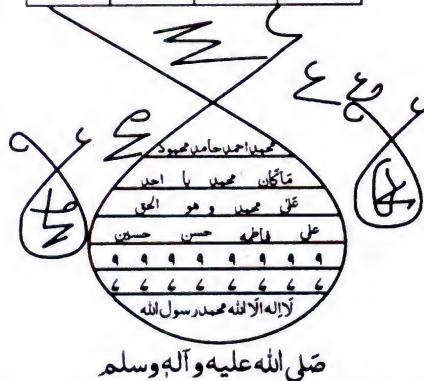 محمد احمد حامد محمود
مَاكَان محمد با احد
عَلٰى محمد و هو الحق
على فاطمه حسن حسين
۹ ۹ ۹ ۹ ۹ ۹ ۹ ۹
۶ ۶ ۶ ۶ ۶ ۶ ۶ ۶
لَا اِلٰه الّا الله محمد رسول الله
صَلى الله عليه و آلهٖ وسلم